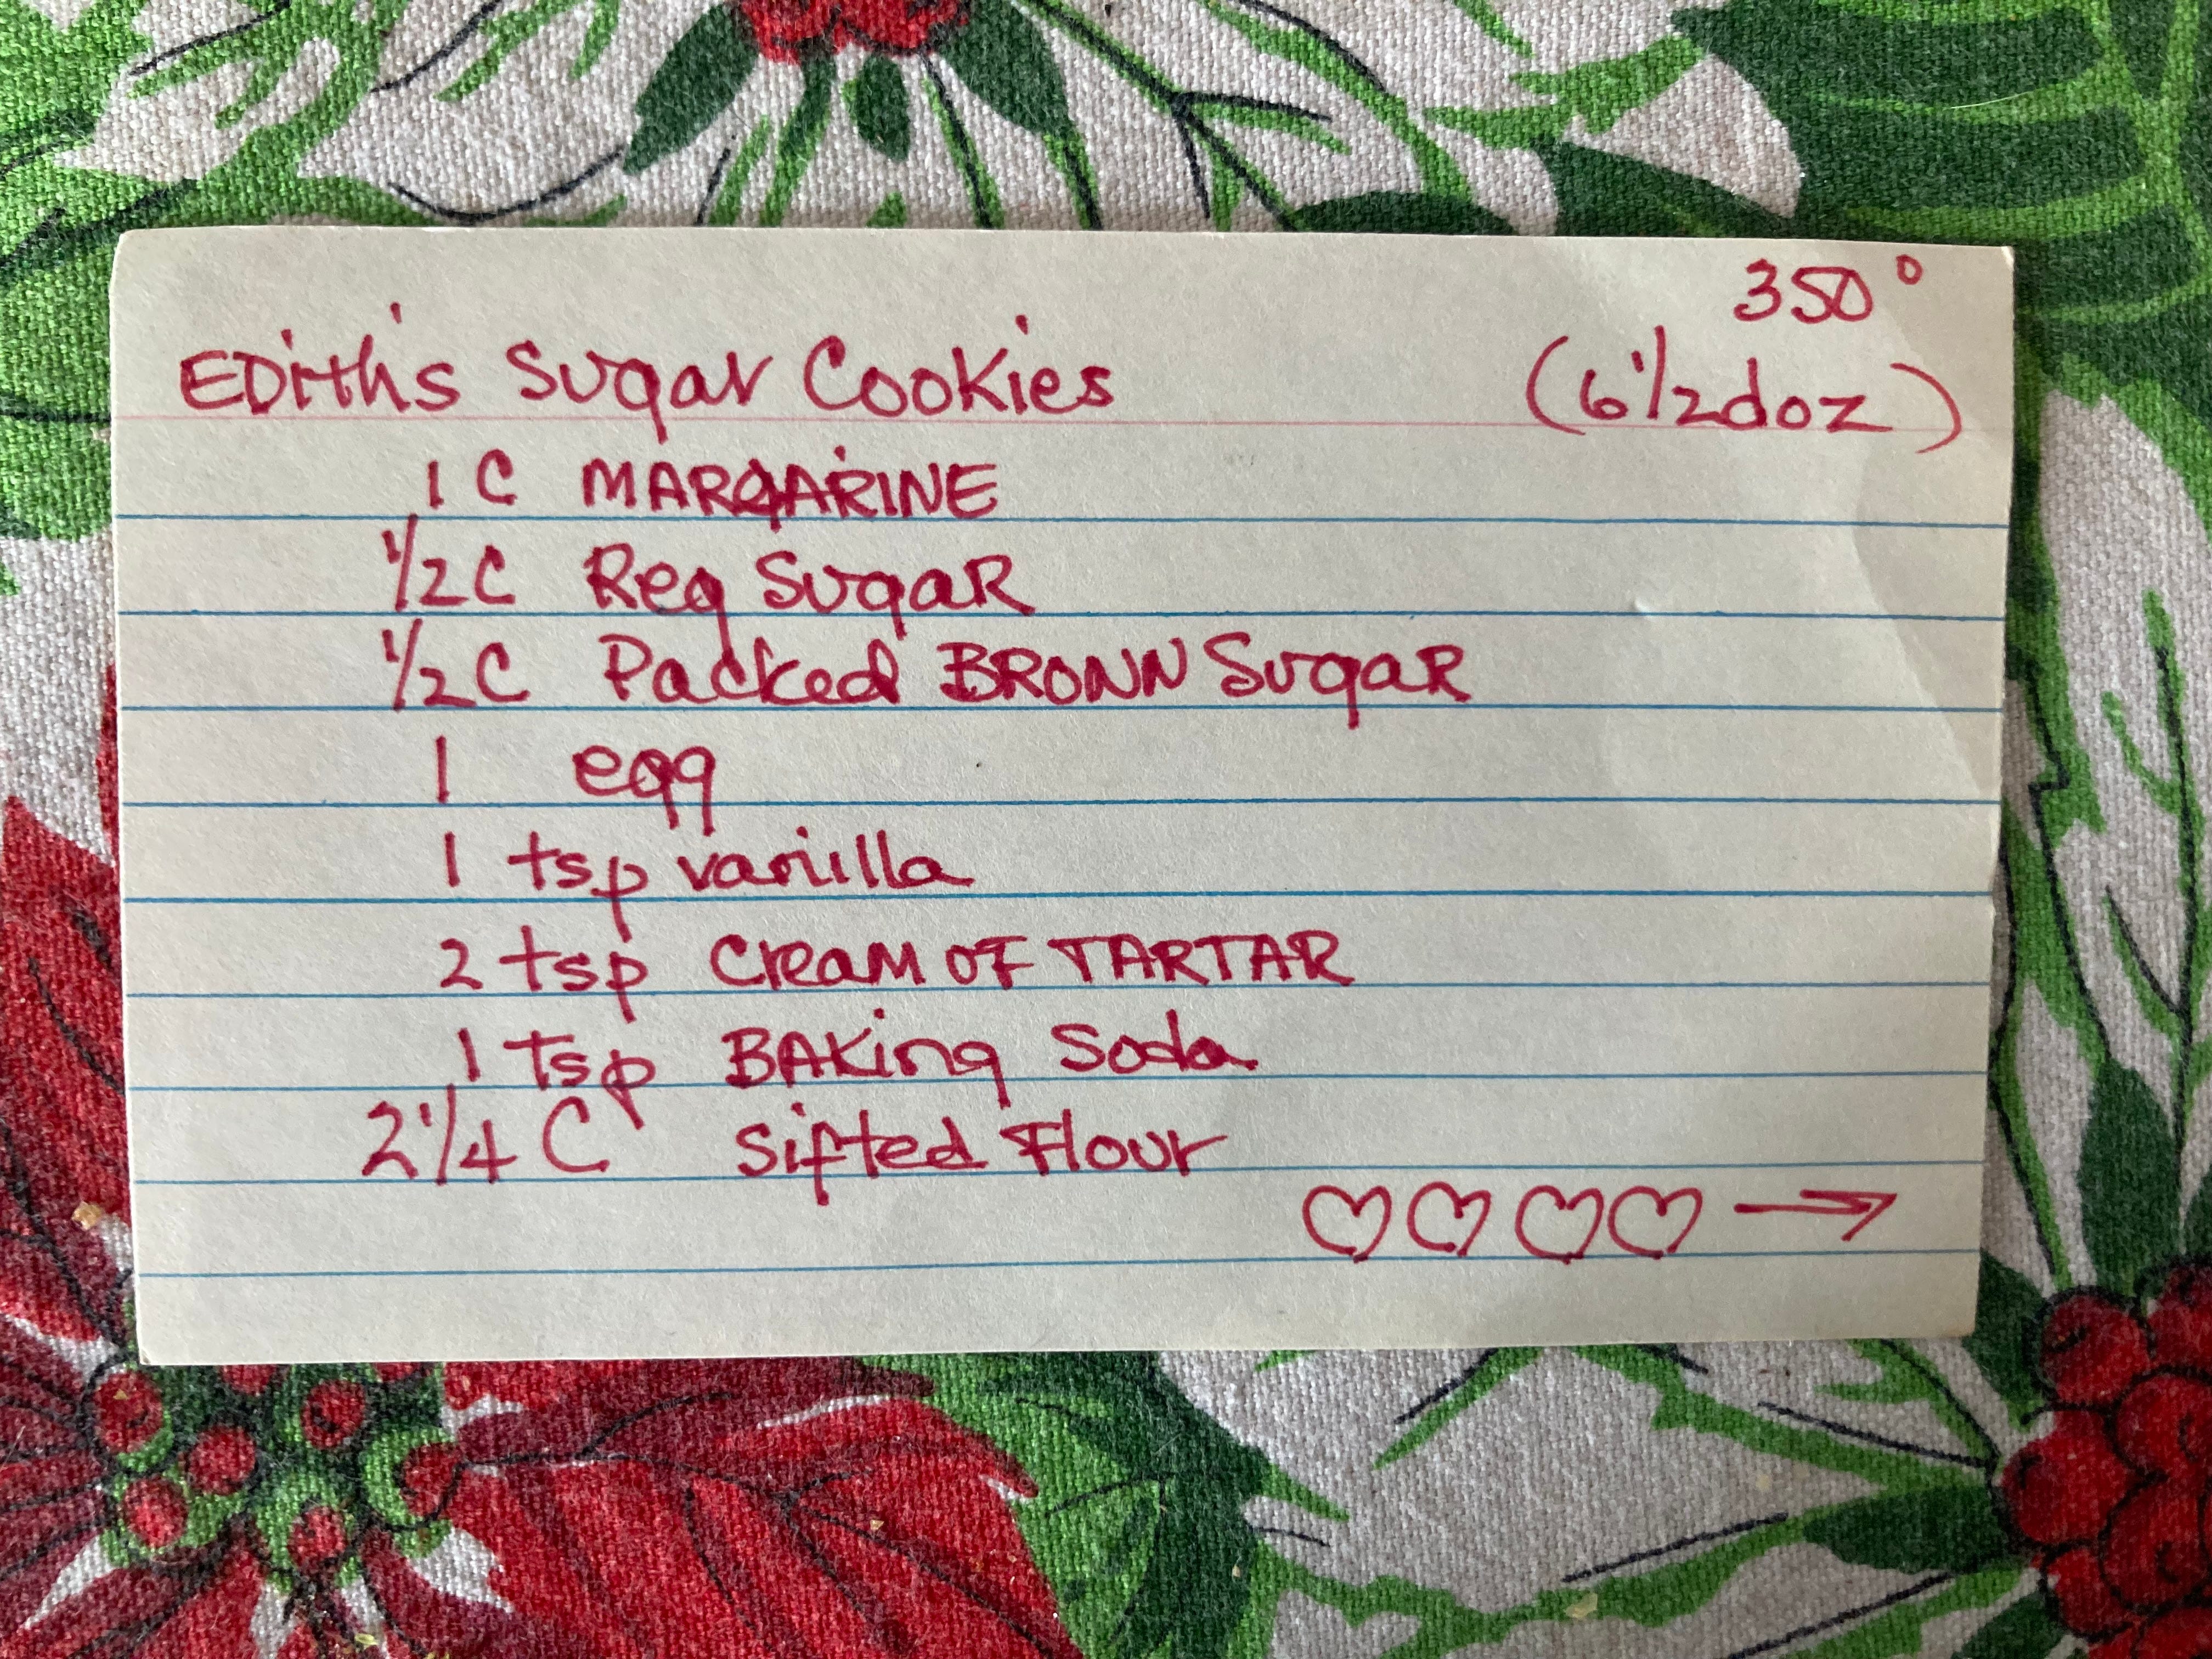 350°
Edith's Sugar Cookies (6 1/2 doz)
1 C MARGARINE
1/2 C Reg Sugar
1/2 C Packed BROWN Sugar
1 egg
1 tsp vanilla
2 tsp Cream OF TARTAR
1 tsp BAKing Soda
2 1/4 C Sifted Flour
♡♡♡♡ →